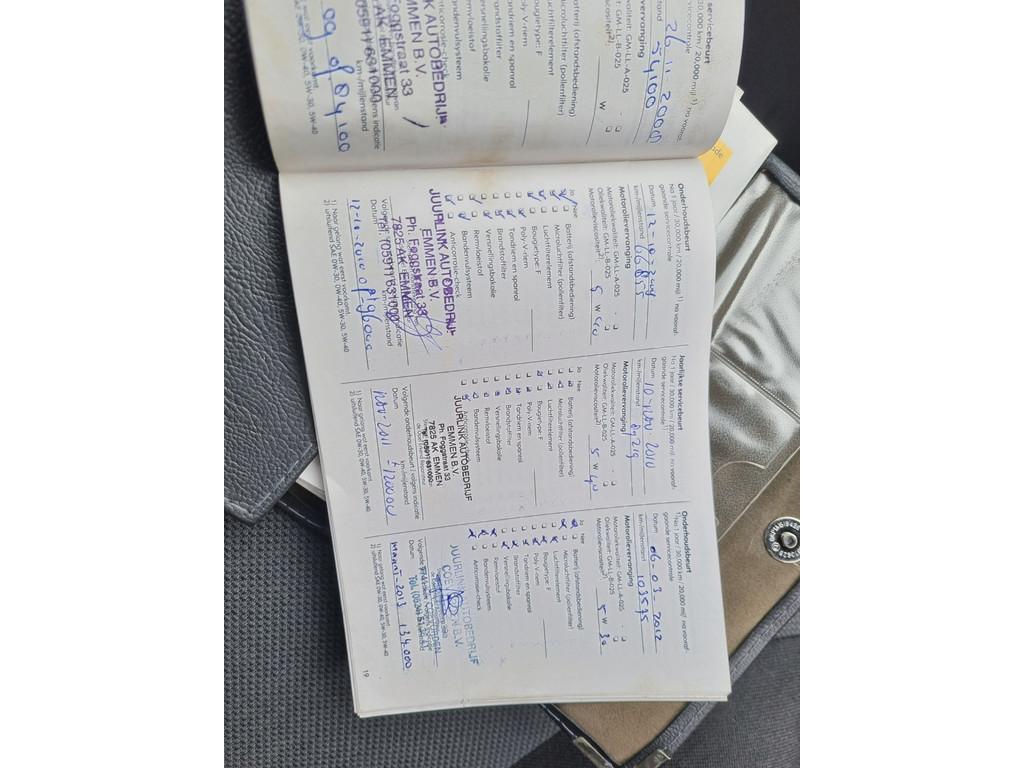 servicebeurt
30,000 km / 20,000 mijl ¹) na vooraf-
servicecontrole
26-11-200
54100
vervanging
GM-LL-A-025
GM-LL-B-025
W
Batterij (afstandsbediening)
Microluchtfilter (pollenfilter)
Luchtfilterelement
Bougietype: F
Poly V-riem
Tandriem en spanrol
Brandstoffilter
Versnellingsbakolie
Remvloeistof
Bandenvulsysteem
Anticorrosie-check
AUTOBEDRIJF
EMMEN B.V.
Foggstraat 33
AK EMMEN
km-/mijlenstand
84100
Onderhoudsbeurt
Na 1 jaar / 30,000 km / 20,000 mijl ¹) na vooraf-
gaande servicecontrole
Datum 12-10-2009
km-/mijlenstand 66855
Motorolievervanging
Motoroliekwaliteit: GM-LL-A-025
Oliekwaliteit: GM-LL-B-025
Motorolieviscositeit²): 5 W 40
Ja Nee
Batterij (afstandsbediening)
Microluchtfilter (pollenfilter)
Luchtfilterelement
Bougietype: F
Poly V-riem
Tandriem en spanrol
Brandstoffilter
Versnellingsbakolie
Remvloeistof
Bandenvulsysteem
Anticorrosie-check
JUURLINK AUTOBEDRIJF
EMMEN B.V.
Ph. Foggstraat 33
7825 AK EMMEN
Tel. (0591) 631000
Datum km-/mijlenstand
12-10-2010 op 96000
1) Naar gelang wat eerst voorkomt
2) uitsluitend SAE 0W-30, 0W-40, 5W-30, 5W-40
Jaarlijkse servicebeurt
Na 1 jaar / 30,000 km / 20,000 mijl na vooraf-
gaande servicecontrole
Datum 10-nov-2010
km-/mijlenstand 89219
Motorolievervanging
Motoroliekwaliteit: GM-LL-A-025
Oliekwaliteit: GM-LL-B-025
Motorolieviscositeit²): 5 W 40
Ja Nee
Batterij (afstandsbediening)
Microluchtfilter (pollenfilter)
Luchtfilterelement
Bougietype: F
Poly V-riem
Tandriem en spanrol
Brandstoffilter
Versnellingsbakolie
Remvloeistof
Bandenvulsysteem
JUURLINK AUTOBEDRIJF
EMMEN B.V.
Ph. Foggstraat 33
7825 AK EMMEN
Tel. (0591) 631000
Volgende onderhoudsbeurt volgens indicatie
Datum km-/mijlenstand
nov-2011 ±120000
1) Naar gelang wat eerst voorkomt
2) uitsluitend SAE 0W-30, 0W-40, 5W-30, 5W-40
Onderhoudsbeurt
Na 1 jaar / 30,000 km / 20,000 mijl na vooraf-
gaande servicecontrole
Datum 06-03-2012
km-/mijlenstand 103575
Motorolievervanging
Motoroliekwaliteit: GM-LL-A-025
Oliekwaliteit: GM-LL-B-025
Motorolieviscositeit²): 5 W 30
Ja Nee
Batterij (afstandsbediening)
Microluchtfilter (pollenfilter)
Luchtfilterelement
Bougietype: F
Poly V-riem
Tandriem en spanrol
Brandstoffilter
Versnellingsbakolie
Remvloeistof
Bandenvulsysteem
Anticorrosie-check
JUURLINK AUTOBEDRIJF
B.V.
Volgende
Datum
Maart-2013 134.000
1) Naar gelang wat eerst voorkomt
2) uitsluitend SAE 0W-30, 0W-40, 5W-30, 5W-40
19